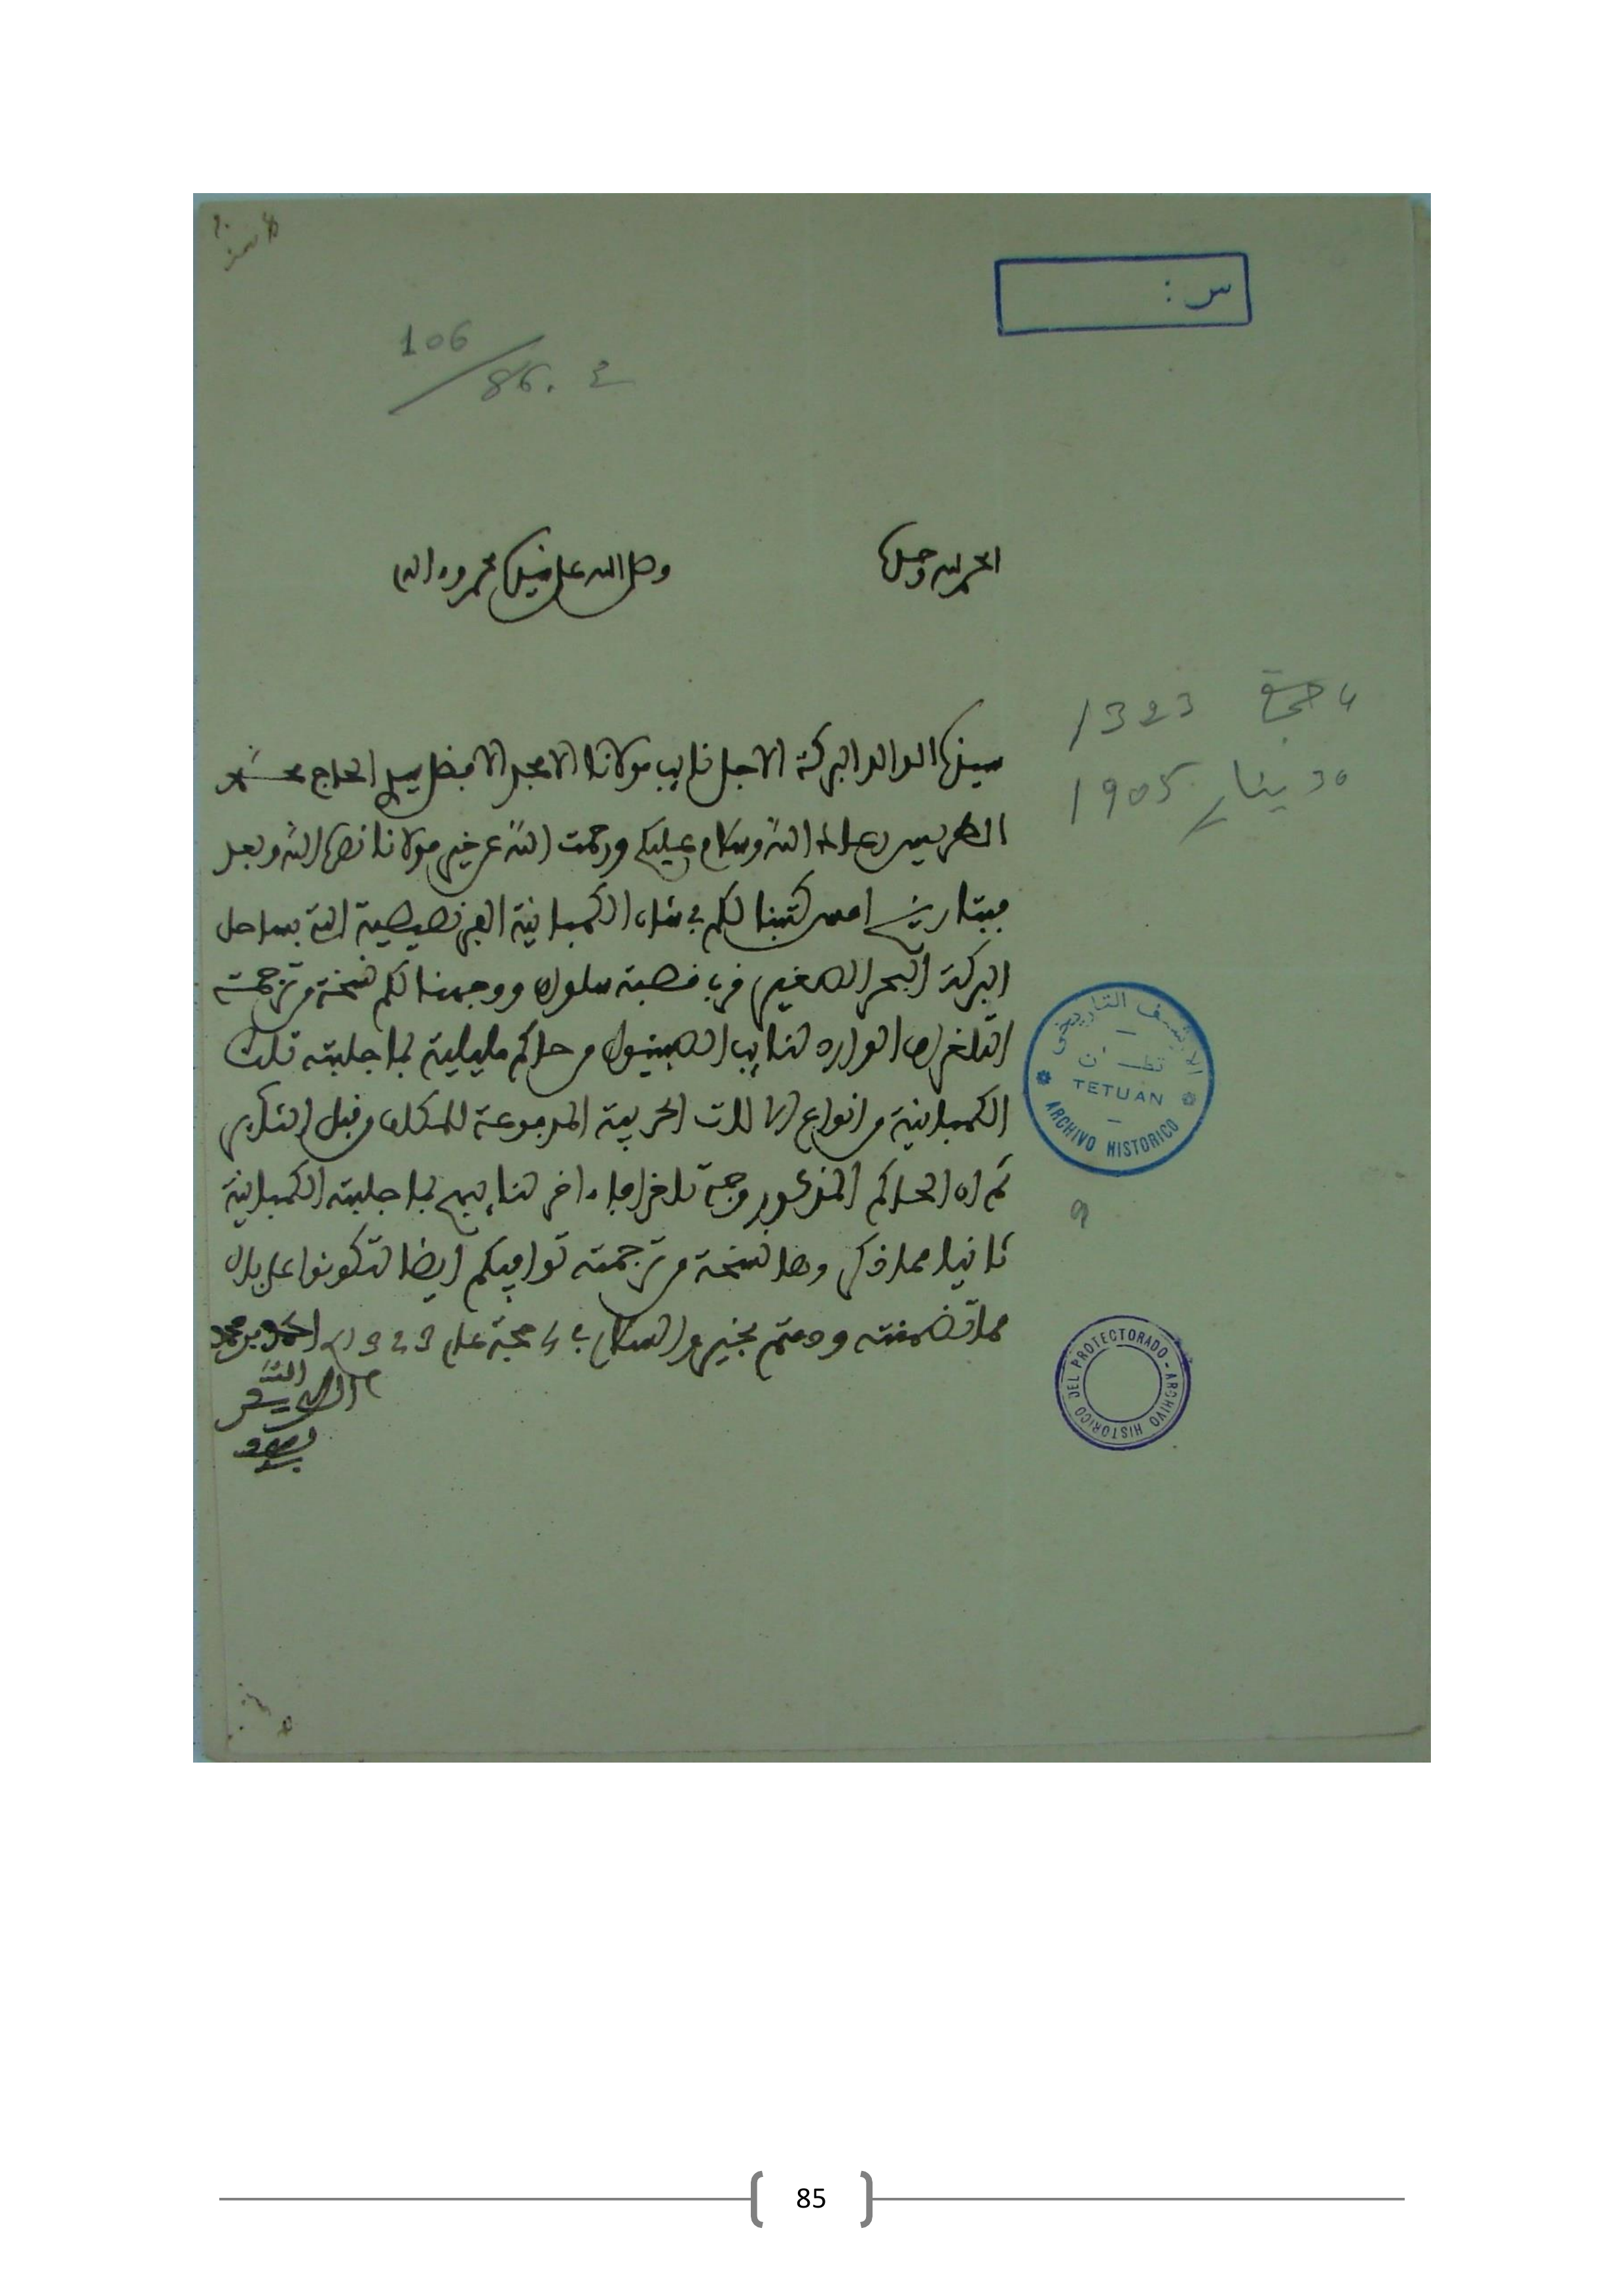 س :
106
86. ع
الحمد لله وحده
وصلى الله على سيدنا محمد وءاله
سيدنا الوالد البركة الاجل نايب مولانا الامجد الافضل سيدي الحاج محمد
الطريس رعاك الله وسلام عليكم ورحمت الله عن خير مولانا نصره الله وبعد
فبتاريخ امس كتبنا لكم في شان الكمبانية الفرنصيصية التي بساحل
البركة البحر الصغير قرب قصبة سلوان ووجهنا لكم نسخة من ترجمة
التلغراف الوارد لنايب الصبنيول من حاكم مليلية بما جلبته تلك
الكمبانية من انواع الاالات الحربية المدفوعة للمكلف من قبل
ثم ان الحاكم المذكور وجه تلغرافا ءاخر لنايبهم بما جلبته الكمبانية
ثانيا مما ذكر وها نسخة من ترجمته توافيكم ايضا لتكونوا على بال
مما تضمنته ودمتم بخير والسلام في 4 حجة عام 1323 احمد بن محمد
الطريس
4 حجة 1323
30 يناير 1905
الارشيف التاريخي
تطــوان
TETUAN
ARCHIVO HISTORICO
9
ARCHIVO HISTORICO DEL PROTECTORADO
85